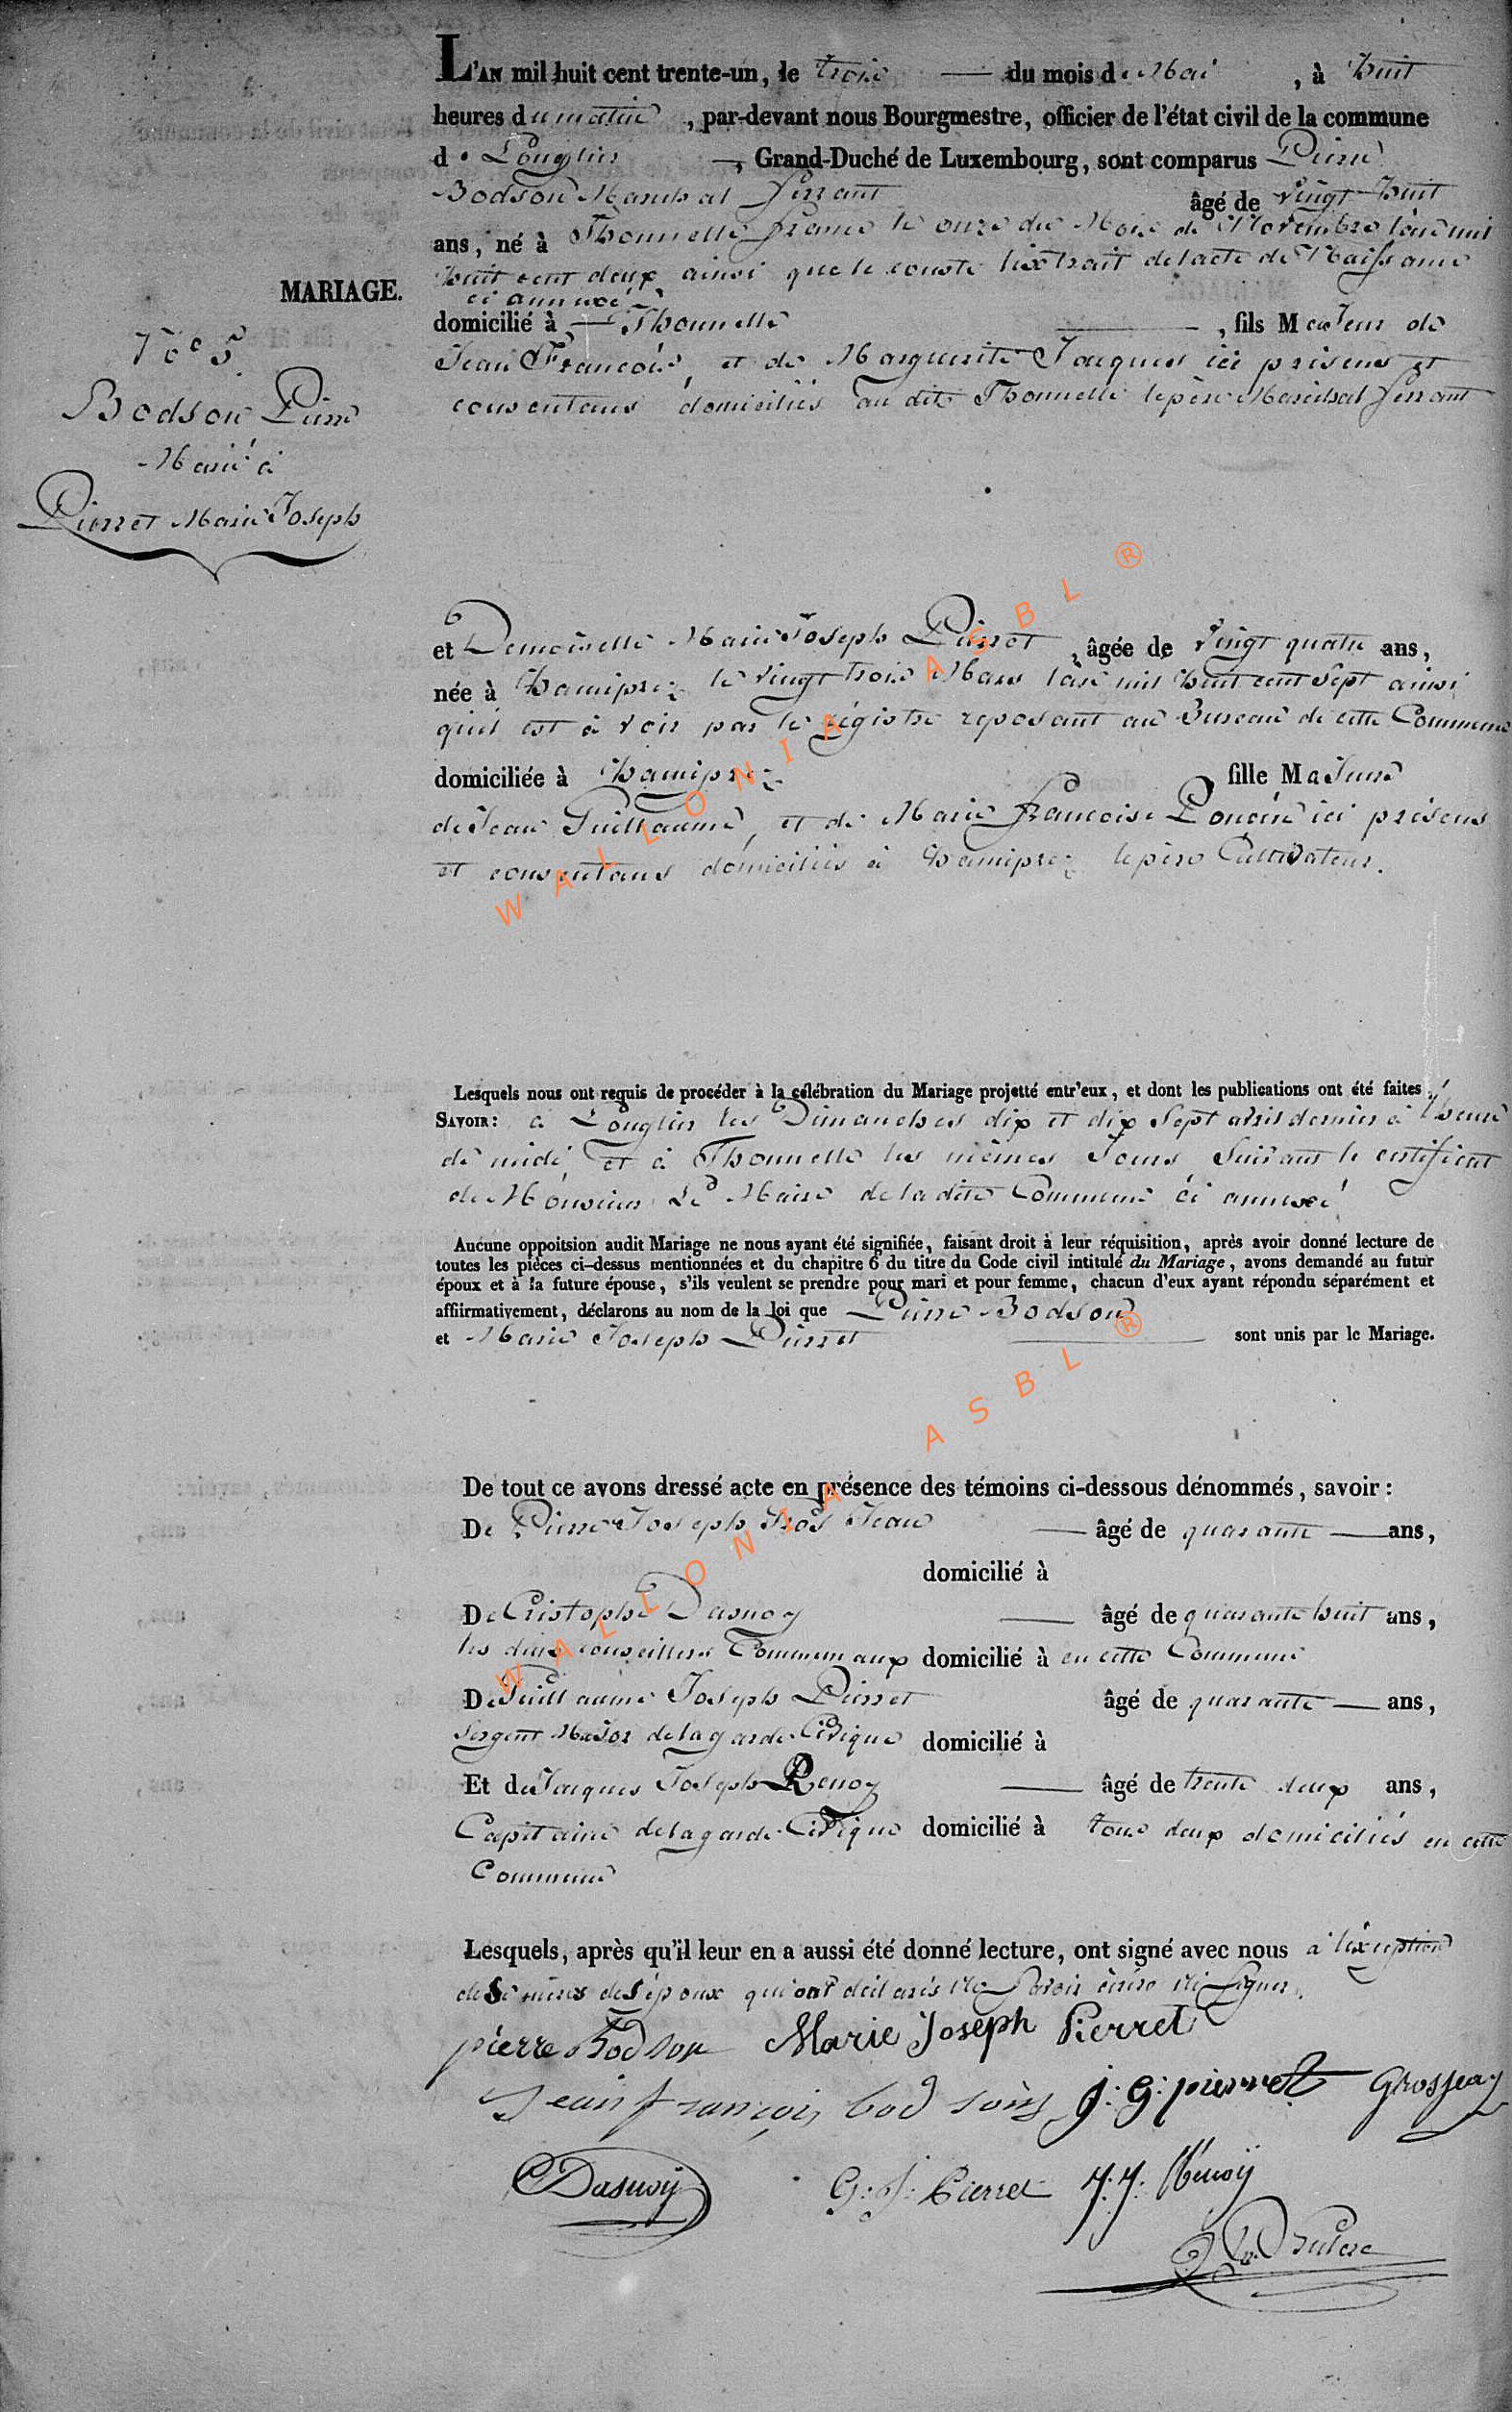 L'AN mil huit cent trente-un, le trois — du mois de Mai, à huit
heures du matin, par-devant nous Bourgmestre, officier de l'état civil de la commune
de Longlier —, Grand-Duché de Luxembourg, sont comparus Pierre
Bodson Marechal ferrant âgé de vingt huit
ans, né à Thonnelle france le onze du Mois de Novembre l'an mil
huit cent deux ainsi que le conste l'extrait de l'acte de Naissance
ci annexé
MARIAGE.
domicilié à — Thonnelle —, fils Majeur de
Jean François, et de Marguerite Jacques ici présens et
consentans domiciliés au dit Thonnelle le père Maréchal ferrant
No 5
Bodson Pierre
Marié à
Pierret Marie Joseph
et Demoiselle Marie Joseph Pierret, âgée de vingt quatre ans,
née à hamiprez le vingt trois Mars l'an mil huit cent sept ainsi
qu'il est à voir par le régistre reposant au Bureau de cette Commune
domiciliée à hamiprez fille Majeure
de Jean Guillaume, et de Marie françoise Poncin ici présens
et consentans domiciliés à hamiprez le père Cultivateur.
Lesquels nous ont requis de procéder à la célébration du Mariage projetté entr'eux, et dont les publications ont été faites,
SAVOIR: à Longlier les Dimanches dix et dix sept avril dernier à l'heure
de midi, et à Thonnelle les mêmes Jours suivant le certificat
de Monsieur Le Maire de la dite Commune ci annexé
Aucune oppoitsion audit Mariage ne nous ayant été signifiée, faisant droit à leur réquisition, après avoir donné lecture de
toutes les pièces ci-dessus mentionnées et du chapitre 6 du titre du Code civil intitulé du Mariage, avons demandé au futur
époux et à la future épouse, s'ils veulent se prendre pour mari et pour femme, chacun d'eux ayant répondu séparément et
affiirmativement, déclarons au nom de la loi que Pierre Bodson
et Marie Joseph Pierret — sont unis par le Mariage.
De tout ce avons dressé acte en présence des témoins ci-dessous dénommés, savoir:
De Pierre Joseph Jean — âgé de quarante — ans,
domicilié à
De Cristophe Dasnoy — âgé de quarante huit ans,
les deux conseillers Communaux domicilié à en cette Commune
De Guillaume Joseph Pierret âgé de quarante — ans,
Sergent Major de la garde Civique domicilié à
Et de Jacques Joseph Renoy — âgé de trente deux ans,
Capitaine de la garde Civique domicilié à tous deux domiciliés en cette
Commune
Lesquels, après qu'il leur en a aussi été donné lecture, ont signé avec nous à l'exception
des mères des époux qui ont déclarés ne savoir écrire ni signer.
pierre Bodson Marie Joseph Pierret
Jean françois bodson J: G: pierret Grosjean
CDasnoy G: J: Pierret J: J: Renoy
WALLONIA ASBL ®
WALLONIA ASBL ®